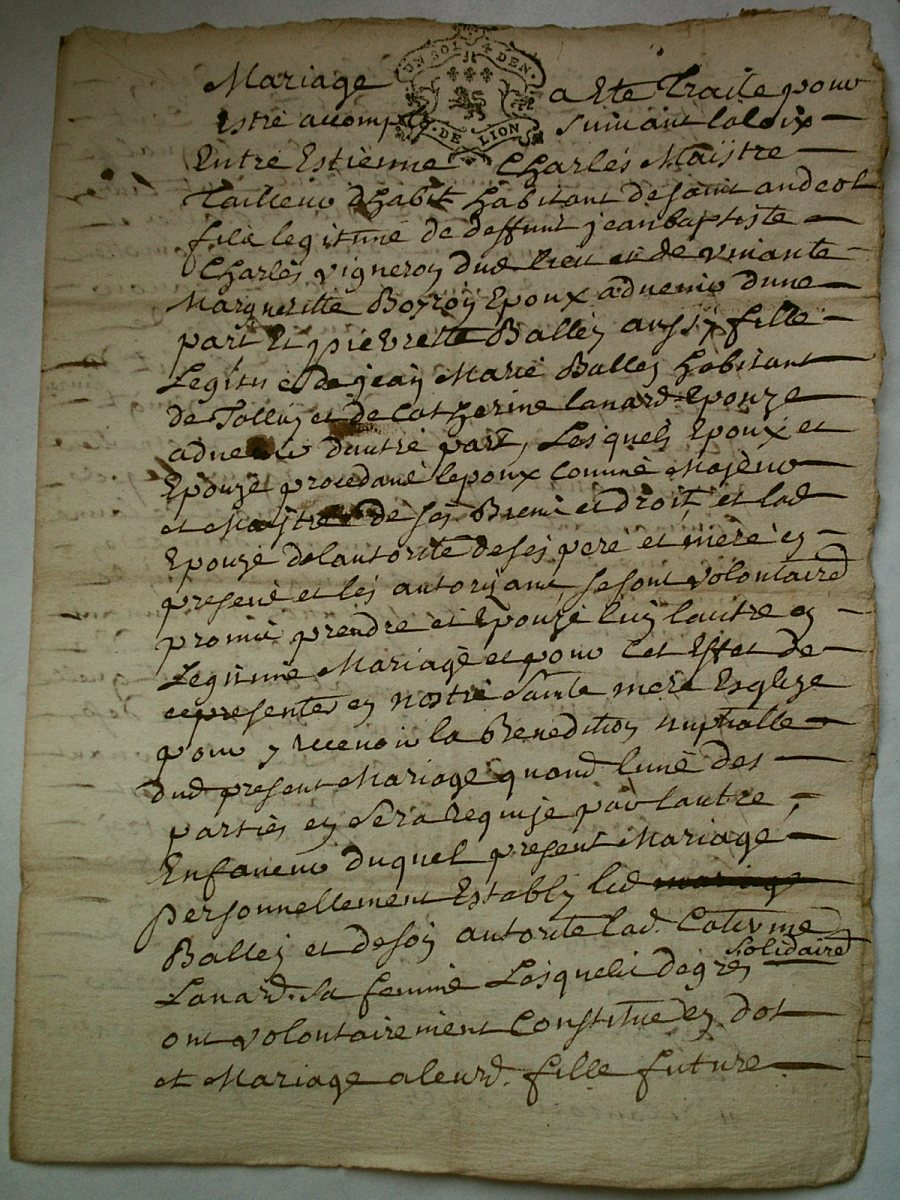 UN SOL DEN.
DE LION
Mariage a Ete Traite pour
Estre accomply suivant la loix
Entre Estienne Charles Maistre
Tailleur dhabit habitant de saint andeol
filx legitime de deffunt jean baptiste
Charles vigneron dud lieu et de vivante
Margueritte Boyron Epoux advenir dune
part Et pierrette Balley aussy fille
Legitime de jean Marie Balley habitant
de et de Catherine Lanard Epouze
advenir dautre part, Lesquels Epoux et
Epouze procedant lepoux comme Majeur
et Maistre de ses Biens et droit et lad
Epouze de lautorite de ses pere et mere en
present et les autorisant, se sont volontaired
promis prendre et Epouze lun lautre en
Legitime Mariage et pour Cet Effet de
ce presenter en nostre Sainte mere Esglize
pour y recevoir la Benedition nuptialle
dud present Mariage quand lune des
parties en Sera Requise par lautre,
En faveur duquel present Mariage
personnellement Estably led mariage
Balley et de son autorite lad. Caterine
Lanard. sa femme Lesquels de gres solidaired
ont volontairement Constitue en dot
et Mariage a leurd. fille future